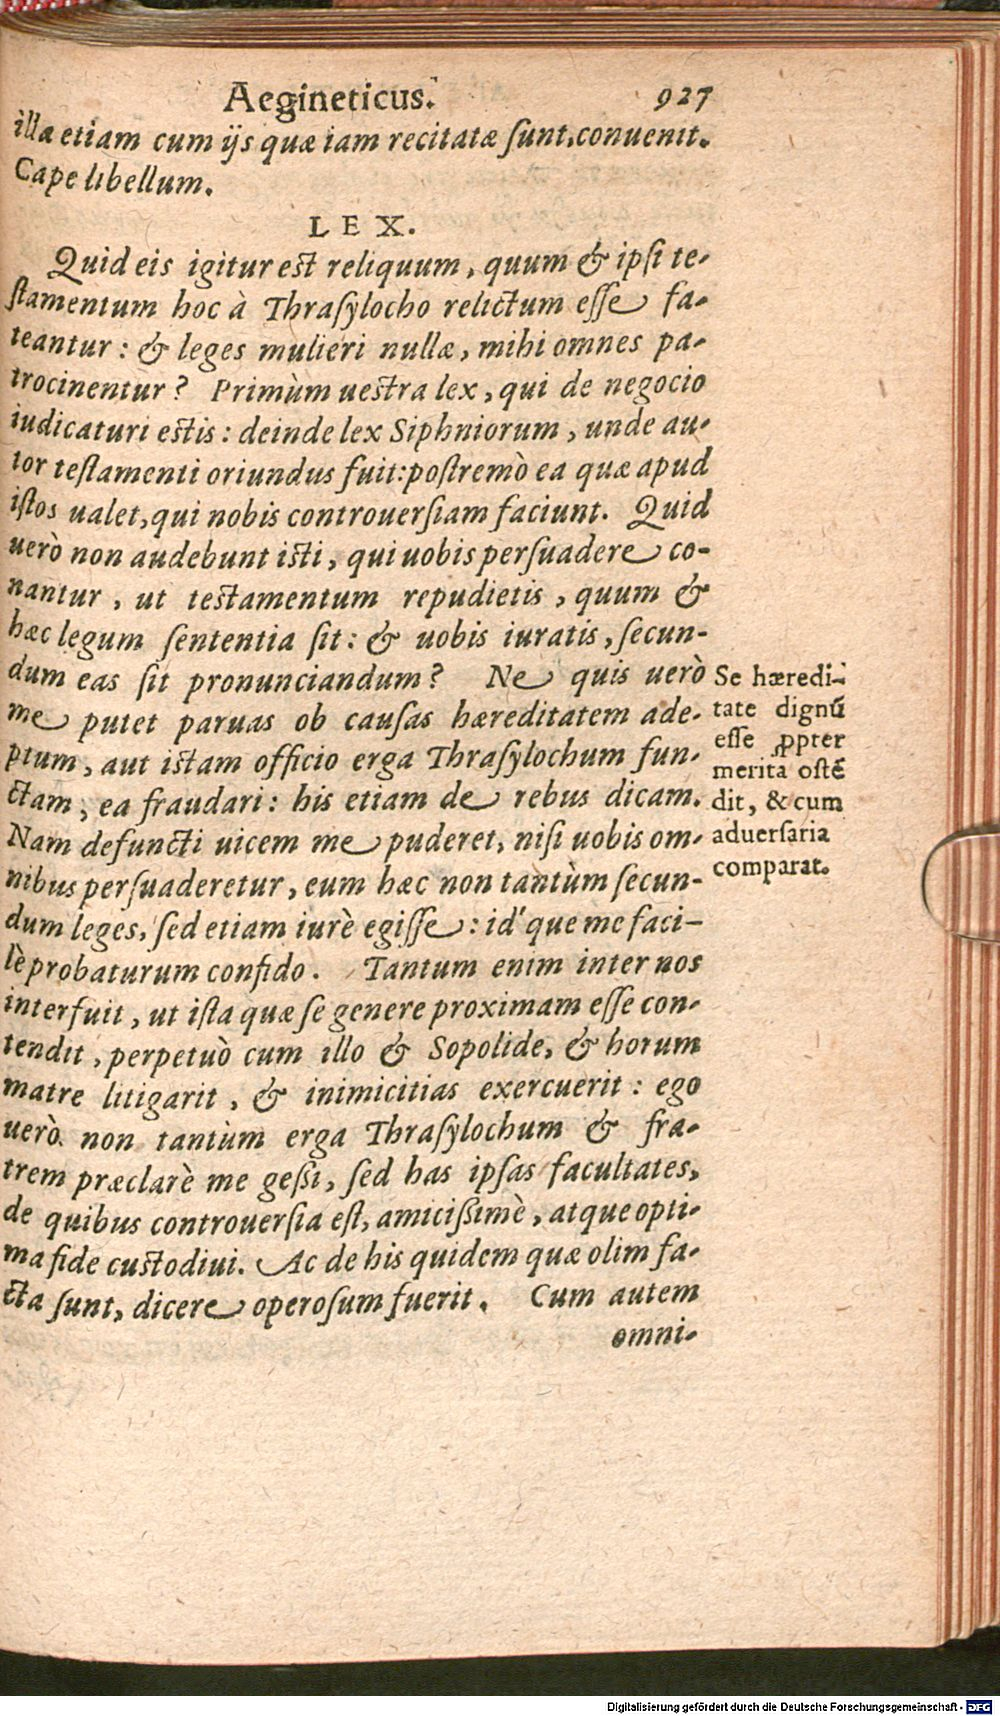 Aegineticus. 927
illæ etiam cum ijs quæ iam recitatæ ſunt, conuenit.
Cape libellum.
LEX.
Quid eis igitur est reliquum, quum & ipſi te-
ſtamentum hoc à Thraſylocho relictum eſſe fa-
teantur: & leges mulieri nullæ, mihi omnes pa-
trocinentur? Primùm uestra lex, qui de negocio
iudicaturi estis: deinde lex Siphniorum, unde au-
tor teſtamenti oriundus fuit: postremò ea quæ apud
iſtos ualet, qui nobis controuerſiam faciunt. Quid
uerò non audebunt isti, qui uobis perſuadere co-
nantur, ut testamentum repudietis, quum &
hæc legum ſententia ſit: & uobis iuratis, ſecun-
dum eas ſit pronunciandum? Ne quis uerò
me putet paruas ob cauſas hæreditatem ade-
ptum, aut istam officio erga Thraſylochum fun-
ctam, ea fraudari: his etiam de rebus dicam.
Nam defuncti uicem me puderet, niſi uobis om-
nibus perſuaderetur, eum hæc non tantùm ſecun-
dum leges, ſed etiam iurè egiſſe: id'que me faci-
lè probaturum confido. Tantum enim inter nos
interfuit, ut iſta quæ ſe genere proximam eſſe con-
tendit, perpetuò cum illo & Sopolide, & horum
matre litigarit, & inimicitias exercuerit: ego
uerò non tantùm erga Thraſylochum & fra-
trem præclarè me geſsi, ſed has ipſas facultates,
de quibus controuerſia eſt, amiciſsimè, atque opti-
ma fide custodiui. Ac de his quidem quæ olim fa-
cta ſunt, dicere operoſum fuerit. Cum autem
omni-
Se hæredi-
tate dignũ
eſſe ꝓpter
merita oſtẽ
dit, & cum
aduerſaria
comparat.
Digitalisierung gefördert durch die Deutsche Forschungsgemeinschaft - DFG